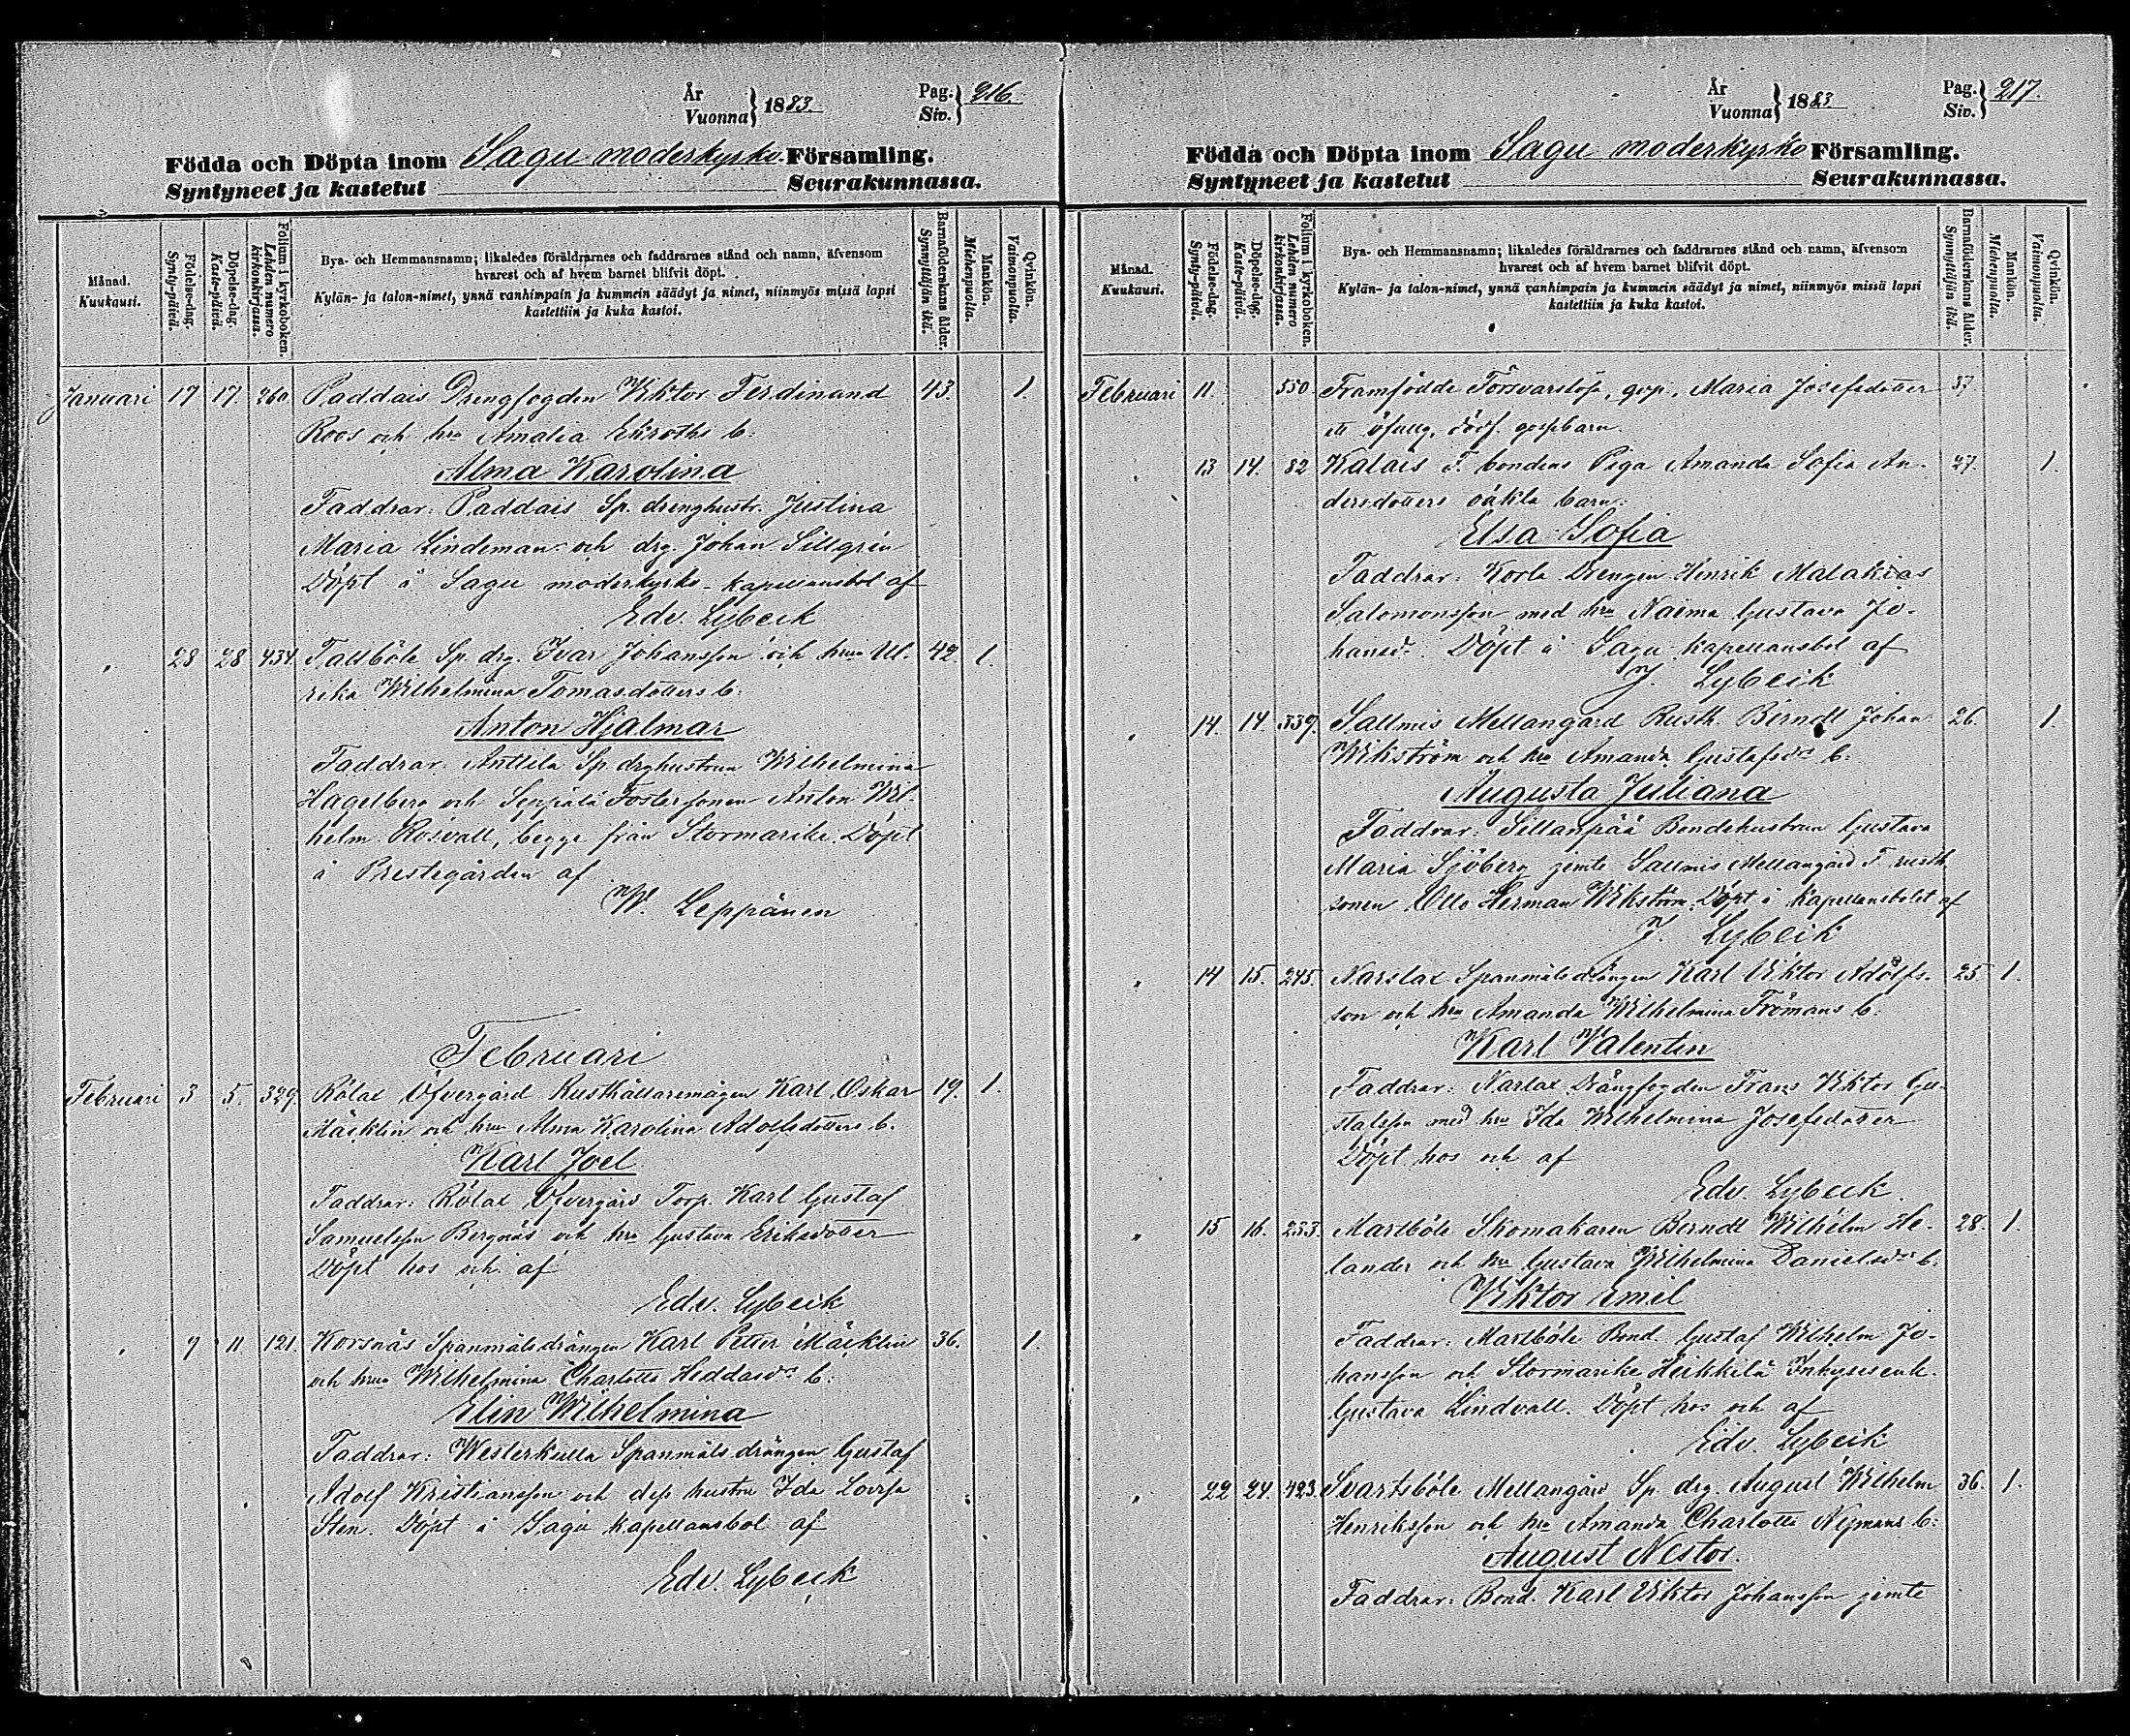 År
Vuonna } 1883.
Pag.
Siv. } 216.
Födda och Döpta inom Sagu moderkyrko Församling.
Syntyneet ja kastetut Seurakunnassa.
Månad.
Kuukausi.
Födelse-dag.
Synty-päivä.
Döpelse-dag.
Kaste-päivä.
Folium i kyrkoboken.
Lehden numero kirkonkirjassa.
Bya- och Hemmansnamn; likaledes föräldrarnes och faddrarnes stånd och namn, äfvensom
hvarest och af hvem barnet blifvit döpt.
Kylän- ja talon-nimet, ynnä vanhimpain ja kummein säädyt ja nimet, niinmyös missä lapsi
kastettiin ja kuka kastoi.
Barnaföderskans ålder.
Synnyttäjän ikä.
Mankön.
Miehenpuolia.
Qvinkön.
Vaimonpuolia.
Januari 17 17. 260 Paddais Drengfogden Viktor Ferdinand 43. 1.
Roos och hru Amalia Ekroths b.
Alma Karolina
Faddrar: Paddais Sp. drenghustr. Justina
Maria Lindeman och drg. Johan Sillgrén
Döpt å Sagu moderkyrko-kapellansbol af
Edv. Lybeck
" 28 28 434. Tallböle Sp. drg. Ivar Johansson och hru Ul- 42. 1.
rika Wilhelmina Tomasdotters b.
Anton Hjalmar
Faddrar. Anttila Sp. drghustrun Wilhelmina
Hagelberg och Seppälä Fostersonen Anton Wil-
helm Rosvall, begge från Stormarike. Döpt
å Prestegården af
W. Leppänen
Februari
Februari 3 5. 329. Rölax Öfvergård Rusthållaremågen Karl Oskar 19. 1.
Mäcklin och hru Alma Karolina Adolfsdotters b.
Karl Joel
Faddrar: Rölax Öfvergård Torp. Karl Gustaf
Samuelsson Bergnäs och hru Gustava Eriksdotter
Döpt hos och af
Edv. Lybeck
" 9 11 121. Korsnäs Spanmålsdrängen Karl Petter Mäcklin 36. 1.
och hru Wilhelmina Charlotta Heddasdr b.
Elin Wilhelmina
Faddrar: Westerkulla Spanmåls drängen Gustaf
Adolf Kristiansson och dess hustru Ida Lovisa
Sten. Döpt å Sagu kapellansbol af
Edv. Lybeck
År
Vuonna } 1883
Pag.
Siv. } 217.
Födda och Döpta inom Sagu moderkyrko Församling.
Syntyneet ja kastetut Seurakunnassa.
Månad.
Kuukausi.
Födelse-dag.
Synty-päivä.
Döpelse-dag.
Kaste-päivä.
Folium i kyrkoboken.
Lehden numero kirkonkirjassa.
Bya- och Hemmansnamn; likaledes föräldrarnes och faddrarnes stånd och namn, äfvensom
hvarest och af hvem barnet blifvit döpt.
Kylän- ja talon-nimet, ynnä vanhimpain ja kummein säädyt ja nimet, niinmyös missä lapsi
kastettiin ja kuka kastoi.
Barnaföderskans ålder.
Synnyttäjän ikä.
Mankön.
Miehenpuolia.
Qvinkön.
Vaimonpuolia.
Februari 11. 550. Framfödde Försvarslösa, Maria Josefsdotter 37
ett ofullg. dödf. gossebarn.
" 13 14. 82 Kalais F. bondens Piga Amanda Sofia An- 27. 1.
dersdotters oäkta barn:
Elsa Sofia
Faddrar: Korla Drengen Henrik Malakias
Salomonsson med hru Naema Gustava Jo-
hansd. Döpt å Sagu kapellansbol af
J. Lybeck
" 14. 14. 339. Sallmis Mellangård Rusth. Berndt Johan 26. 1.
Wikström och hru Amanda Gustafsdr b.
Augusta Juliana
Faddrar: Sillanpää Bondehustrun Gustava
Maria Sjöberg jemte Sallmis Mellangård F. rusth
sonen Otto Herman Wikström. Döpt i Kapellansbolet af
J. Lybeck
" 14 15. 245. Narslax Spanmålsdrängen Karl Viktor Adolfs- 25 1.
son och hru Amanda Wilhelmina Frömans b.
Karl Valentin
Faddrar: Narlax Drängfogden Frans Viktor Gu-
stafsson med hru Ida Wilhelmina Josefsdotter
Döpt hos och af
Edv. Lybeck.
" 15 16. 233. Martböle Skomakaren Berndt Wilhelm He- 28. 1.
lander och hru Gustava Wilhelmina Danielsdr b.
Viktor Emil
Faddrar: Martböle Bond. Gustaf Wilhelm Jo-
hansson och Stormarike Heikkilä Inhysesenk.
Gustava Lindvall. Döpt hos och af
Edv. Lybeck
" 22 24. 423. Svartsböle Mellangård Sp. drg. August Wilhelm 36. 1.
Henriksson och hru Amanda Charlotta Nymans b:
August Nestor.
Faddrar: Bond. Karl Viktor Johansson jemte